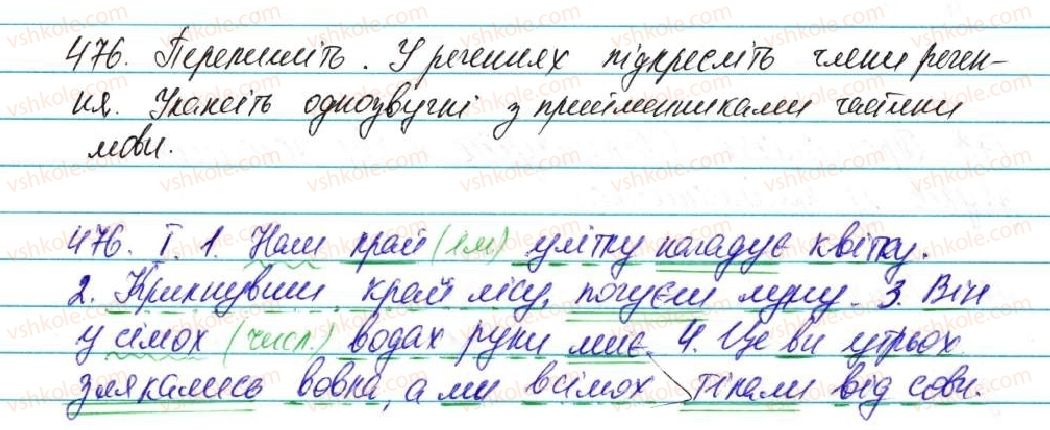 476. Перепишіть. У реченнях підкресліть члени речен-
ня. Укажіть однозвучні з прийменниками частини
мови.
476. I. 1. Наш край (ім) улітку нагадує квітку.
2. Крикнувши край лісу, почуєш луну. 3. Він
у сімох (числ.) водах руки миє. 4. Це ви утрьох
злякались вовка, а ми всімох тікали від сови.